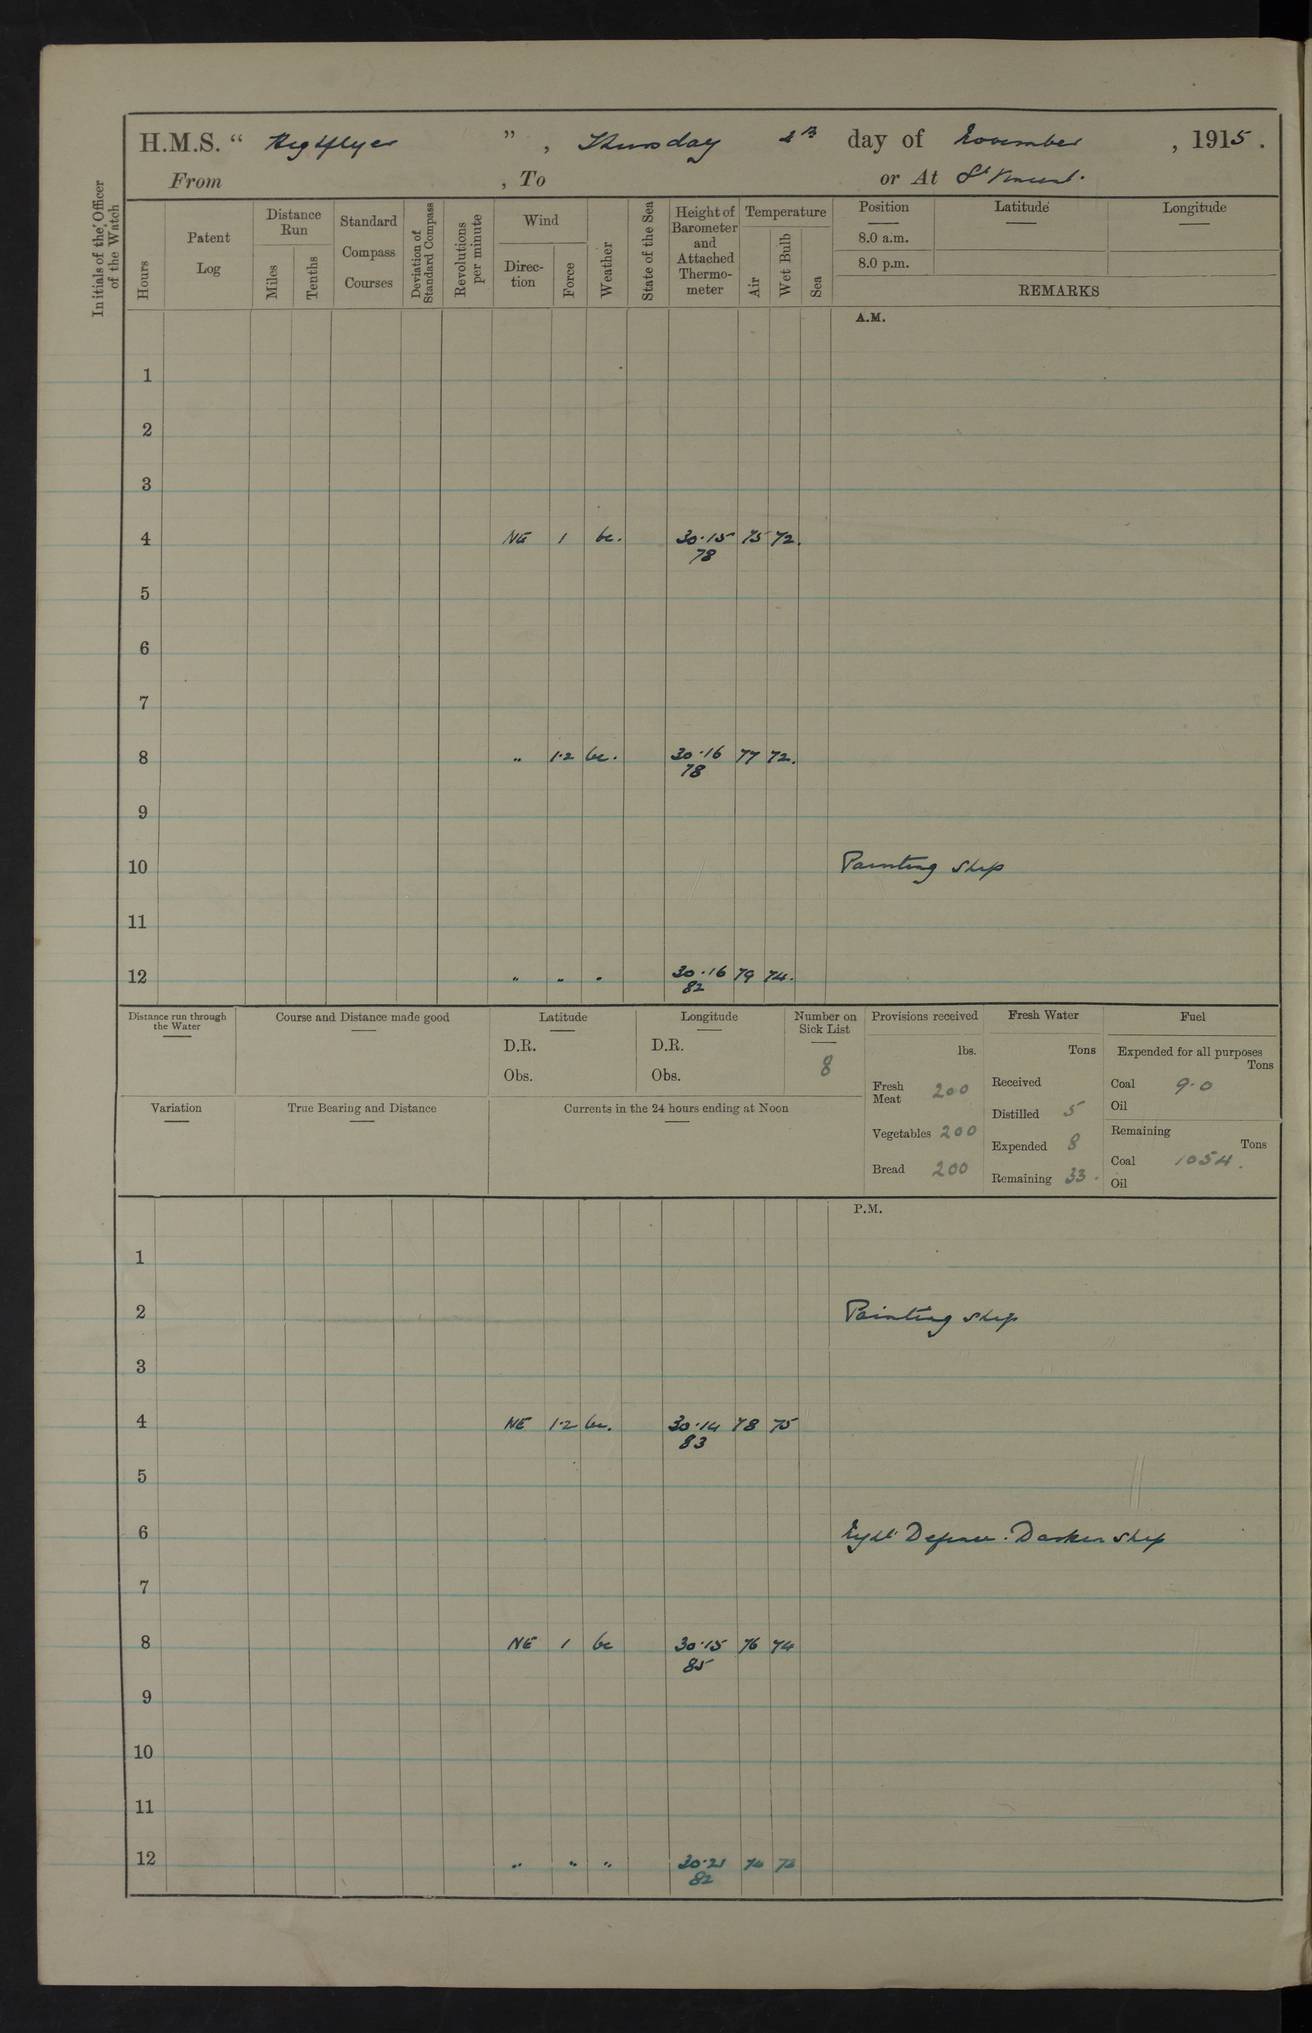 H.M.S. “ Highflyer ” , Thursday 4th day of November , 1915 .
From , To or At St Vincent.
Initials of the Officer of the Watch
Hours
Patent Log
Distance Run
Miles
Tenths
Standard Compass Courses
Deviation of Standard Compass
Revolutions per minute
Wind
Direc-tion
Force
Weather
State of the Sea
Height of Barometer and Attached Thermo-meter
Temperature
Air
Wet Bulb
Sea
Position Latitude Longitude
8.0 a.m.
8.0 p.m.
REMARKS
A.M.
1
2
3
4 NE 1 bc. 30.15 75 72.
78
5
6
7
8 " 1.2 bc. 30.16 77 72.
78
9
10 Painting Ship
11
12 " " " 30.16 79 74.
82
Distance run through the Water
Course and Distance made good
Latitude
D.R.
Obs.
Longitude
D.R.
Obs.
Number on Sick List
8
Provisions received
lbs.
Fresh Meat 200
Vegetables 200
Bread 200
Fresh Water
Tons
Received
Distilled 5
Expended 8
Remaining 33.
Fuel
Expended for all purposes
Tons
Coal 9.0
Oil
Remaining
Tons
Coal 1054.
Oil
Variation
True Bearing and Distance
Currents in the 24 hours ending at Noon
P.M.
1
2 Painting Ship
3
4 NE 1.2 bc. 30.14 78 75
83
5
6 Night Defence. Darken Ship
7
8 NE 1 bc 30.15 76 74
85
9
10
11
12 " " " 30.21
82